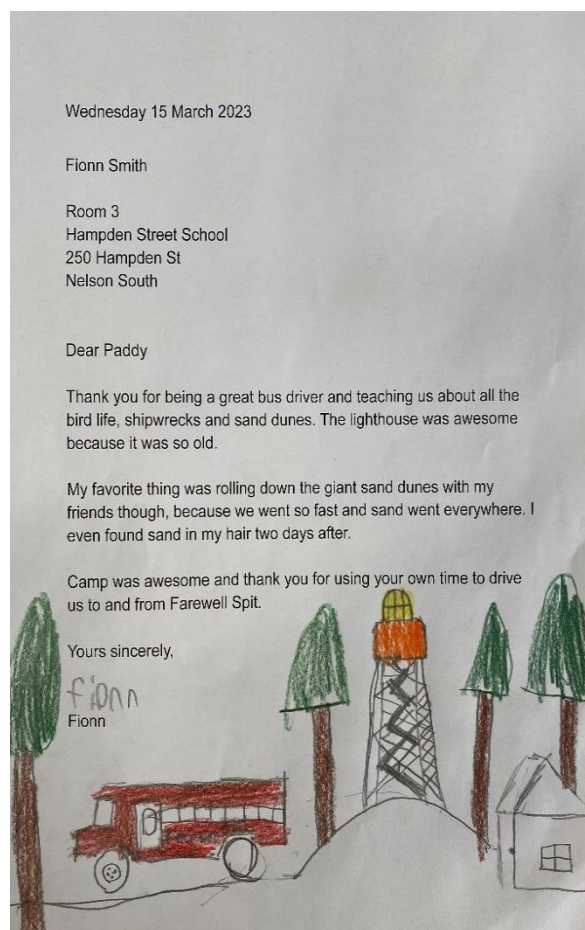 Wednesday 15 March 2023
Fionn Smith
Room 3
Hampden Street School
250 Hampden St
Nelson South
Dear Paddy
Thank you for being a great bus driver and teaching us about all the
bird life, shipwrecks and sand dunes. The lighthouse was awesome
because it was so old.
My favorite thing was rolling down the giant sand dunes with my
friends though, because we went so fast and sand went everywhere. I
even found sand in my hair two days after.
Camp was awesome and thank you for using your own time to drive
us to and from Farewell Spit.
Yours sincerely,
fionn
Fionn